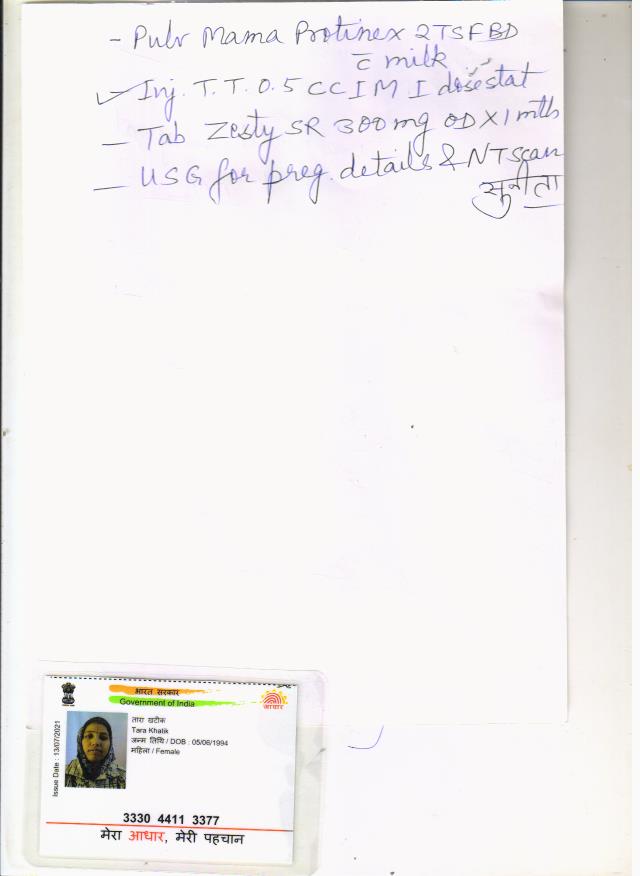 - Pulv Mama Protinex 2TSFBD
c̄ milk
Inj. T.T. 0.5 CC IM I dose stat
- Tab Zesty SR 300mg OD X 1 mth
- USG for preg. details & NT Scan
सुनीता
भारत सरकार
Government of India
आधार
तारा खटीक
Tara Khatik
जन्म तिथि / DOB : 05/06/1994
महिला / Female
Issue Date : 13/07/2021
3330 4411 3377
मेरा आधार, मेरी पहचान